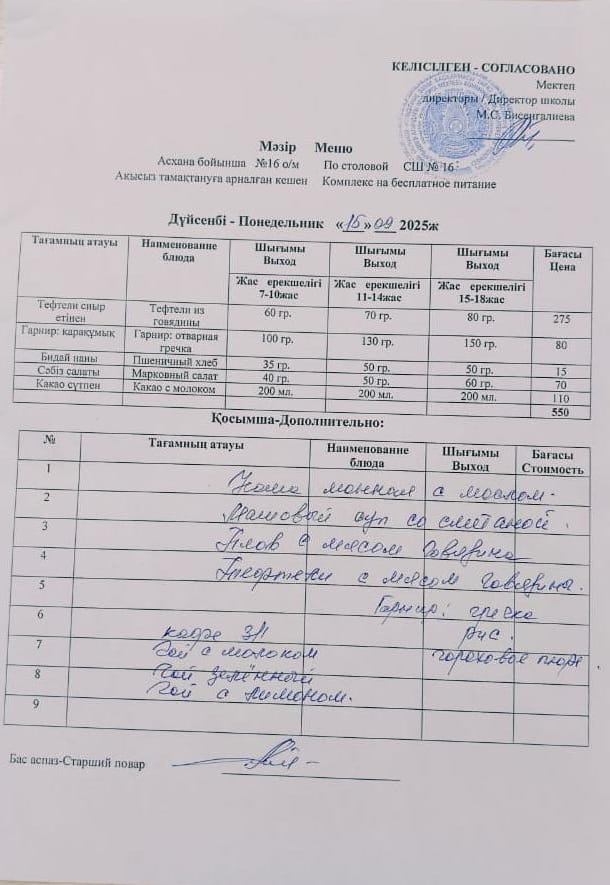 КЕЛІСІЛГЕН - СОГЛАСОВАНО
Мектеп
директоры / Директор школы
М.С. Бисенгалиева
Мәзір Меню
Асхана бойынша №16 о/м По столовой СШ № 16
Ақысыз тамақтануға арналған кешен Комплекс на бесплатное питание
Дүйсенбі - Понедельник «15» 09 2025ж
Тағамның атауы Наименование блюда Шығымы Выход Шығымы Выход Шығымы Выход Бағасы Цена
Жас ерекшелігі 7-10жас Жас ерекшелігі 11-14жас Жас ерекшелігі 15-18жас
Тефтели сиыр етінен Тефтели из говядины 60 гр. 70 гр. 80 гр. 275
Гарнир: қарақұмық Гарнир: отварная гречка 100 гр. 130 гр. 150 гр. 80
Бидай наны Пшеничный хлеб 35 гр. 50 гр. 50 гр. 15
Сәбіз салаты Марковный салат 40 гр. 50 гр. 60 гр. 70
Какао сүтпен Какао с молоком 200 мл. 200 мл. 200 мл. 110
550
Қосымша-Дополнительно:
№ Тағамның атауы Наименование блюда Шығымы Выход Бағасы Стоимость
1
Каша манная с маслом.
2
Машовый суп со сметаной.
3
Плов с мясом говядина
4
с мясом говядина.
5
Гарнир: гречка
6
кофе 3/1 рис.
7
Чай с молоком гороховое пюре.
8
Чай зелённый
Чай с лимоном.
9
Бас аспаз-Старший повар